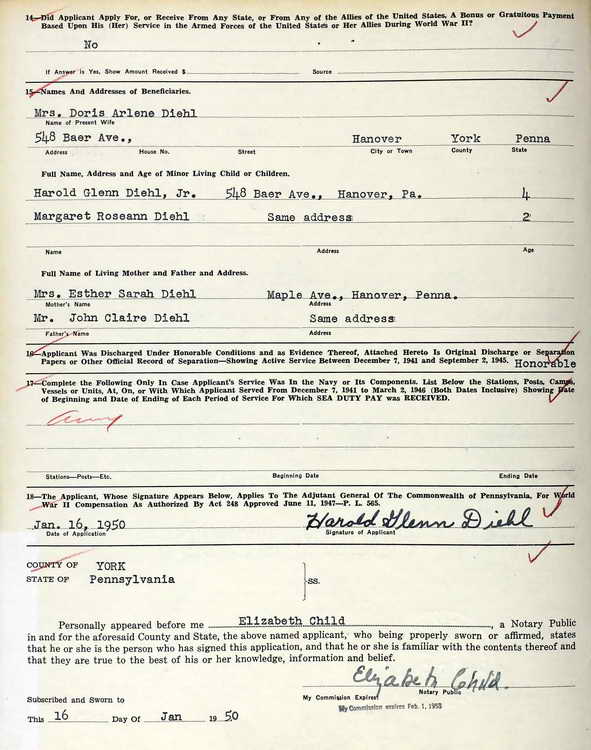 14—Did Applicant Apply For, or Receive From Any State, or From Any of the Allies of the United States, A Bonus or Gratuitous Payment
Based Upon His (Her) Service in the Armed Forces of the United States or Her Allies During World War II?
No
If Answer is Yes, Show Amount Received $ Source
15—Names And Addresses of Beneficiaries.
Mrs. Doris Arlene Diehl
Name of Present Wife
548 Baer Ave., Hanover York Penna
Address House No. Street City or Town County State
Full Name, Address and Age of Minor Living Child or Children.
Harold Glenn Diehl, Jr. 548 Baer Ave., Hanover, Pa. 4
Margaret Roseann Diehl Same address 2
Name Address Age
Full Name of Living Mother and Father and Address.
Mrs. Esther Sarah Diehl Maple Ave., Hanover, Penna.
Mother's Name Address
Mr. John Claire Diehl Same address
Father's Name Address
16—Applicant Was Discharged Under Honorable Conditions and as Evidence Thereof, Attached Hereto Is Original Discharge or Separation
Papers or Other Official Record of Separation—Showing Active Service Between December 7, 1941 and September 2, 1945. Honorable
17—Complete the Following Only In Case Applicant's Service Was in the Navy or Its Components. List Below the Stations, Posts, Camps,
Vessels or Units, At, On, or With Which Applicant Served From December 7, 1941 to March 2, 1946 (Both Dates Inclusive) Showing Date
of Beginning and Date of Ending of Each Period of Service For Which SEA DUTY PAY was RECEIVED.
Army
Stations—Posts—Etc. Beginning Date Ending Date
18—The Applicant, Whose Signature Appears Below, Applies To The Adjutant General Of The Commonwealth of Pennsylvania, For World
War II Compensation As Authorized By Act 248 Approved June 11, 1947—P. L. 565.
Jan. 16, 1950 Harold Glenn Diehl
Date of Application Signature of Applicant
COUNTY OF YORK
STATE OF Pennsylvania ss.
Personally appeared before me Elizabeth Child, a Notary Public
in and for the aforesaid County and State, the above named applicant, who being properly sworn or affirmed, states
that he or she is the person who has signed this application, and that he or she is familiar with the contents thereof and
that they are true to the best of his or her knowledge, information and belief.
Elizabeth Child.
Notary Public
Subscribed and Sworn to My Commission Expires
My Commission expires Feb. 1, 1953
This 16 Day Of Jan 1950